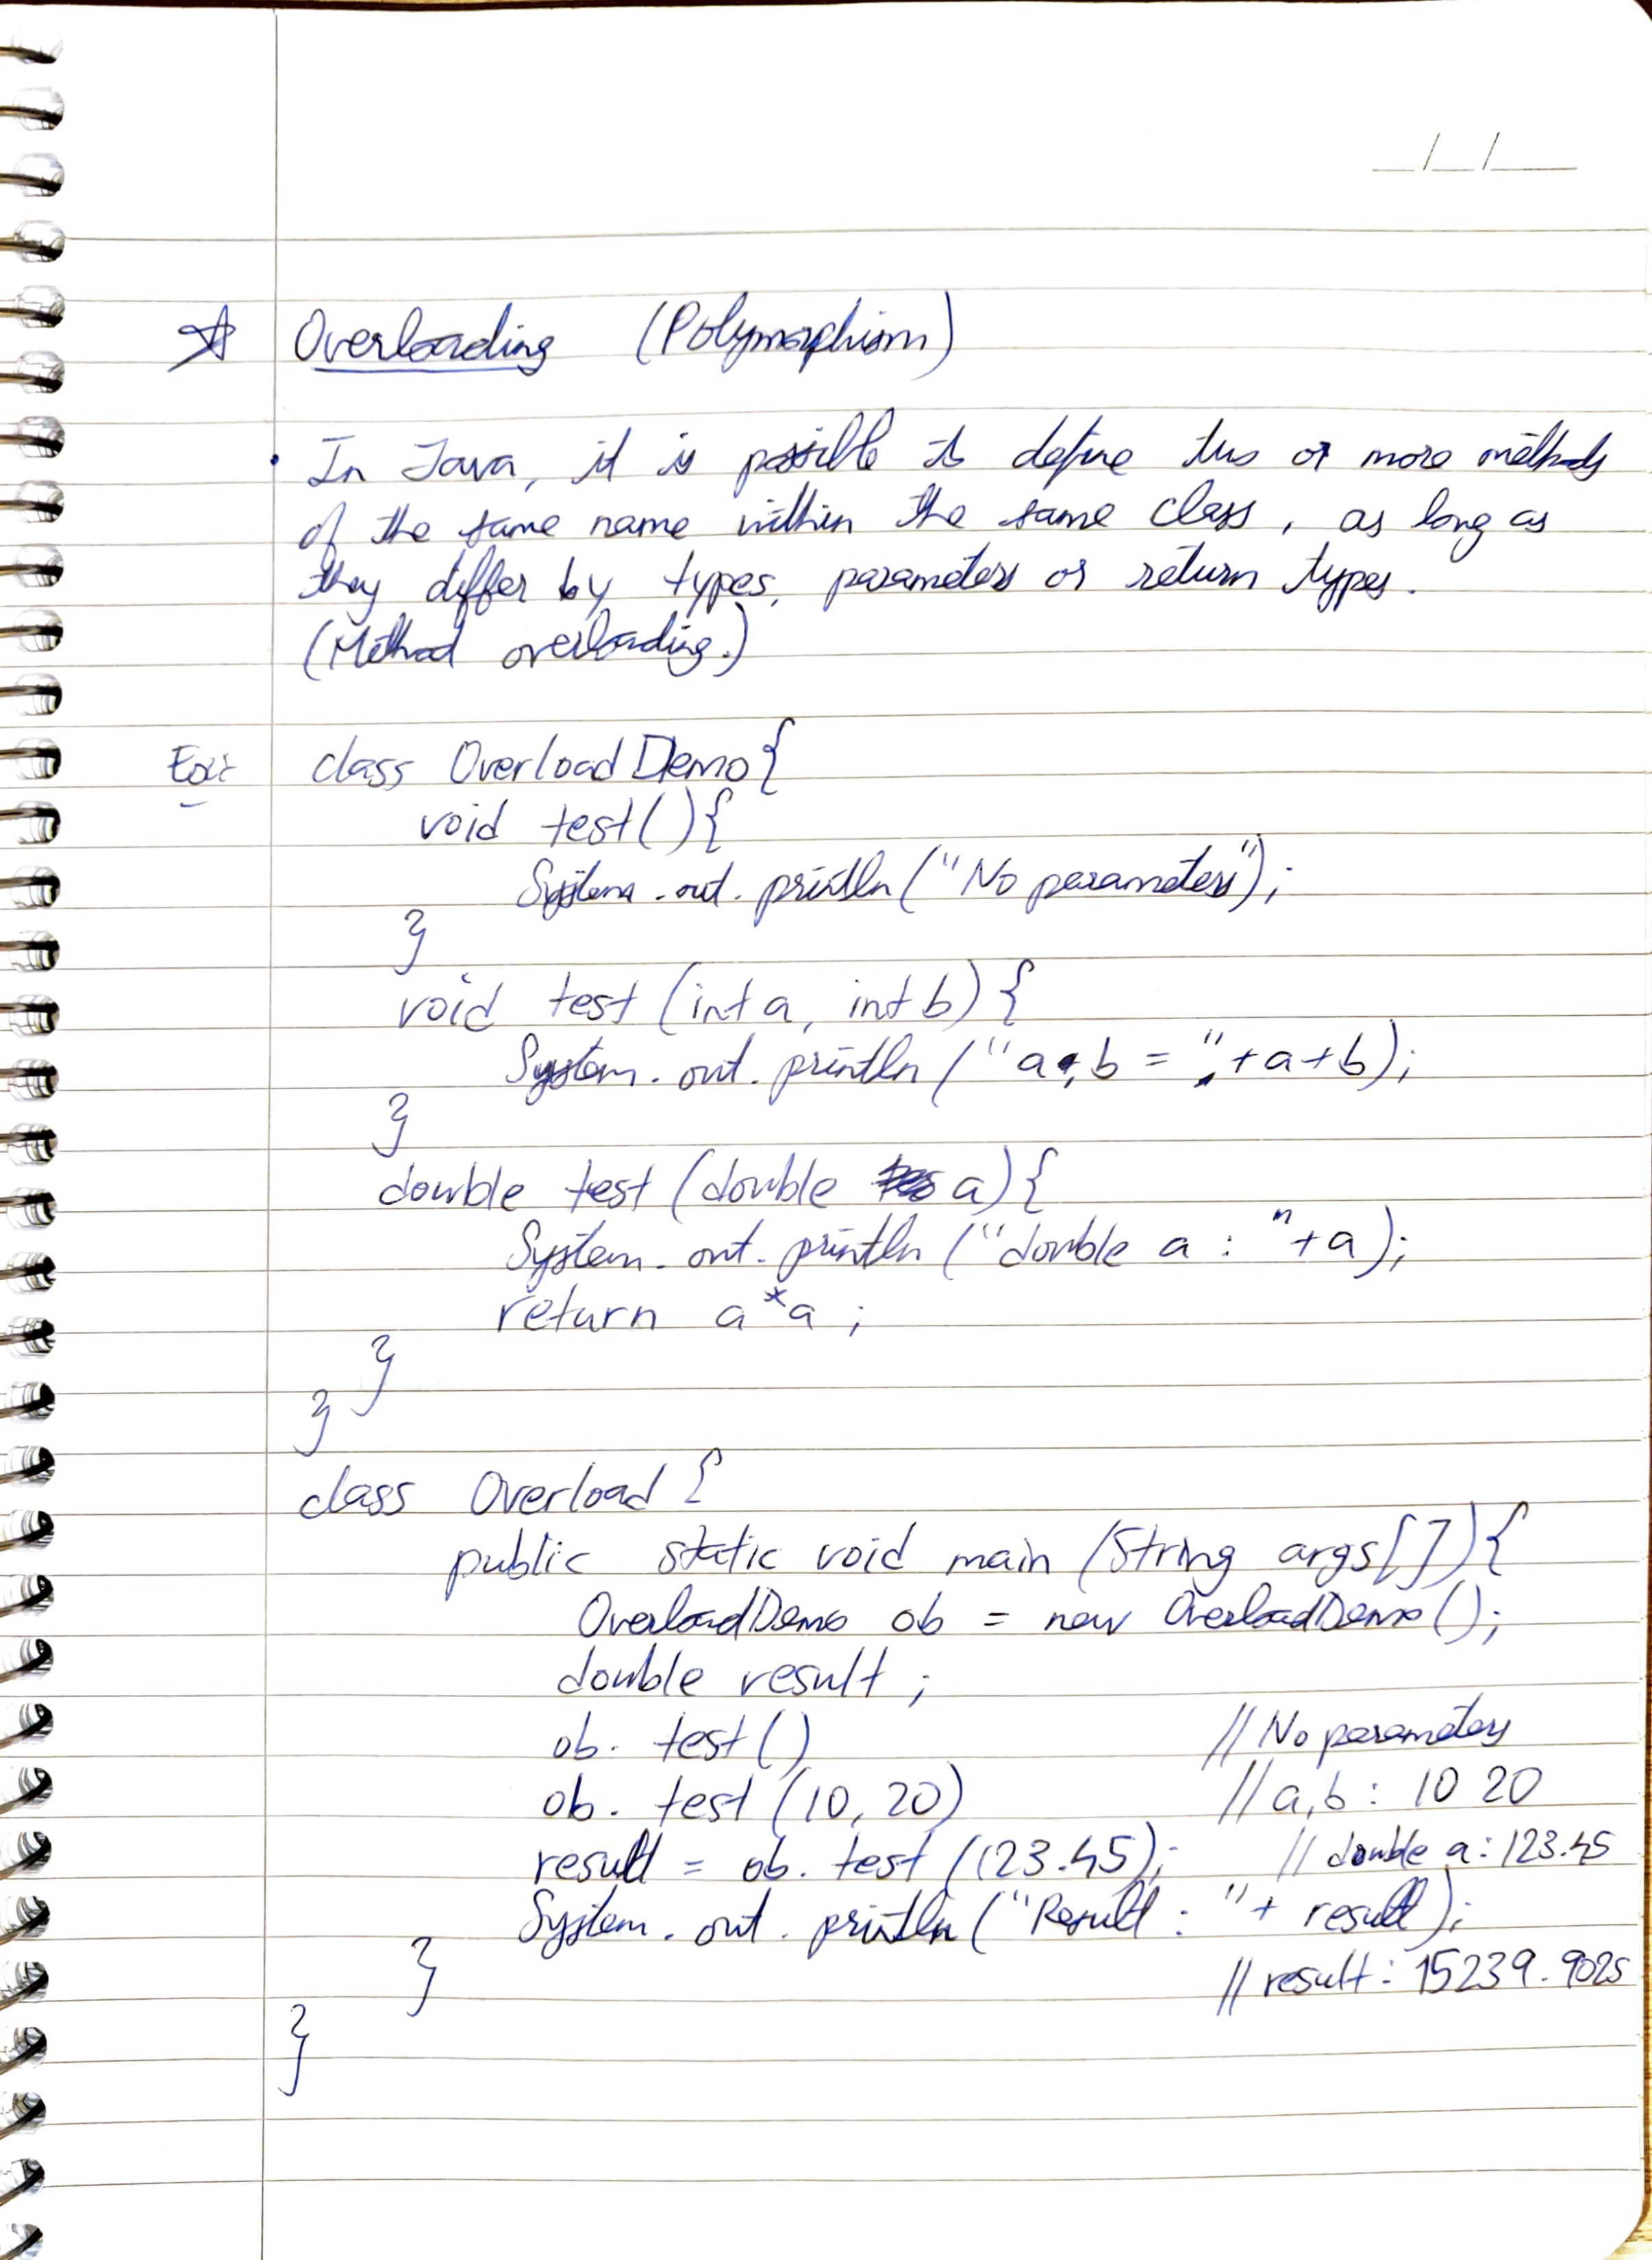 ☆ Overloading (Polymorphism)
• In Java, it is possible to define two or more methods
of the same name within the same class, as long as
they differ by types, parameters or return types.
(Method overloading.)
Ex: class OverloadDemo{
void test(){
System.out.println("No parameters");
}
void test (int a, int b){
System.out.println ("a,b = "+a+b);
}
double test (double a){
System.out.println ("double a : "+a);
return a*a ;
}
}
class Overload {
public static void main (String args[]){
OverloadDemo ob = new OverloadDemo();
double result ;
ob. test() // No parameters
ob. test (10, 20) // a,b : 10 20
result = ob. test (123.45); // double a : 123.45
System.out.println ("Result : "+ result);
} // result : 15239.9025
}